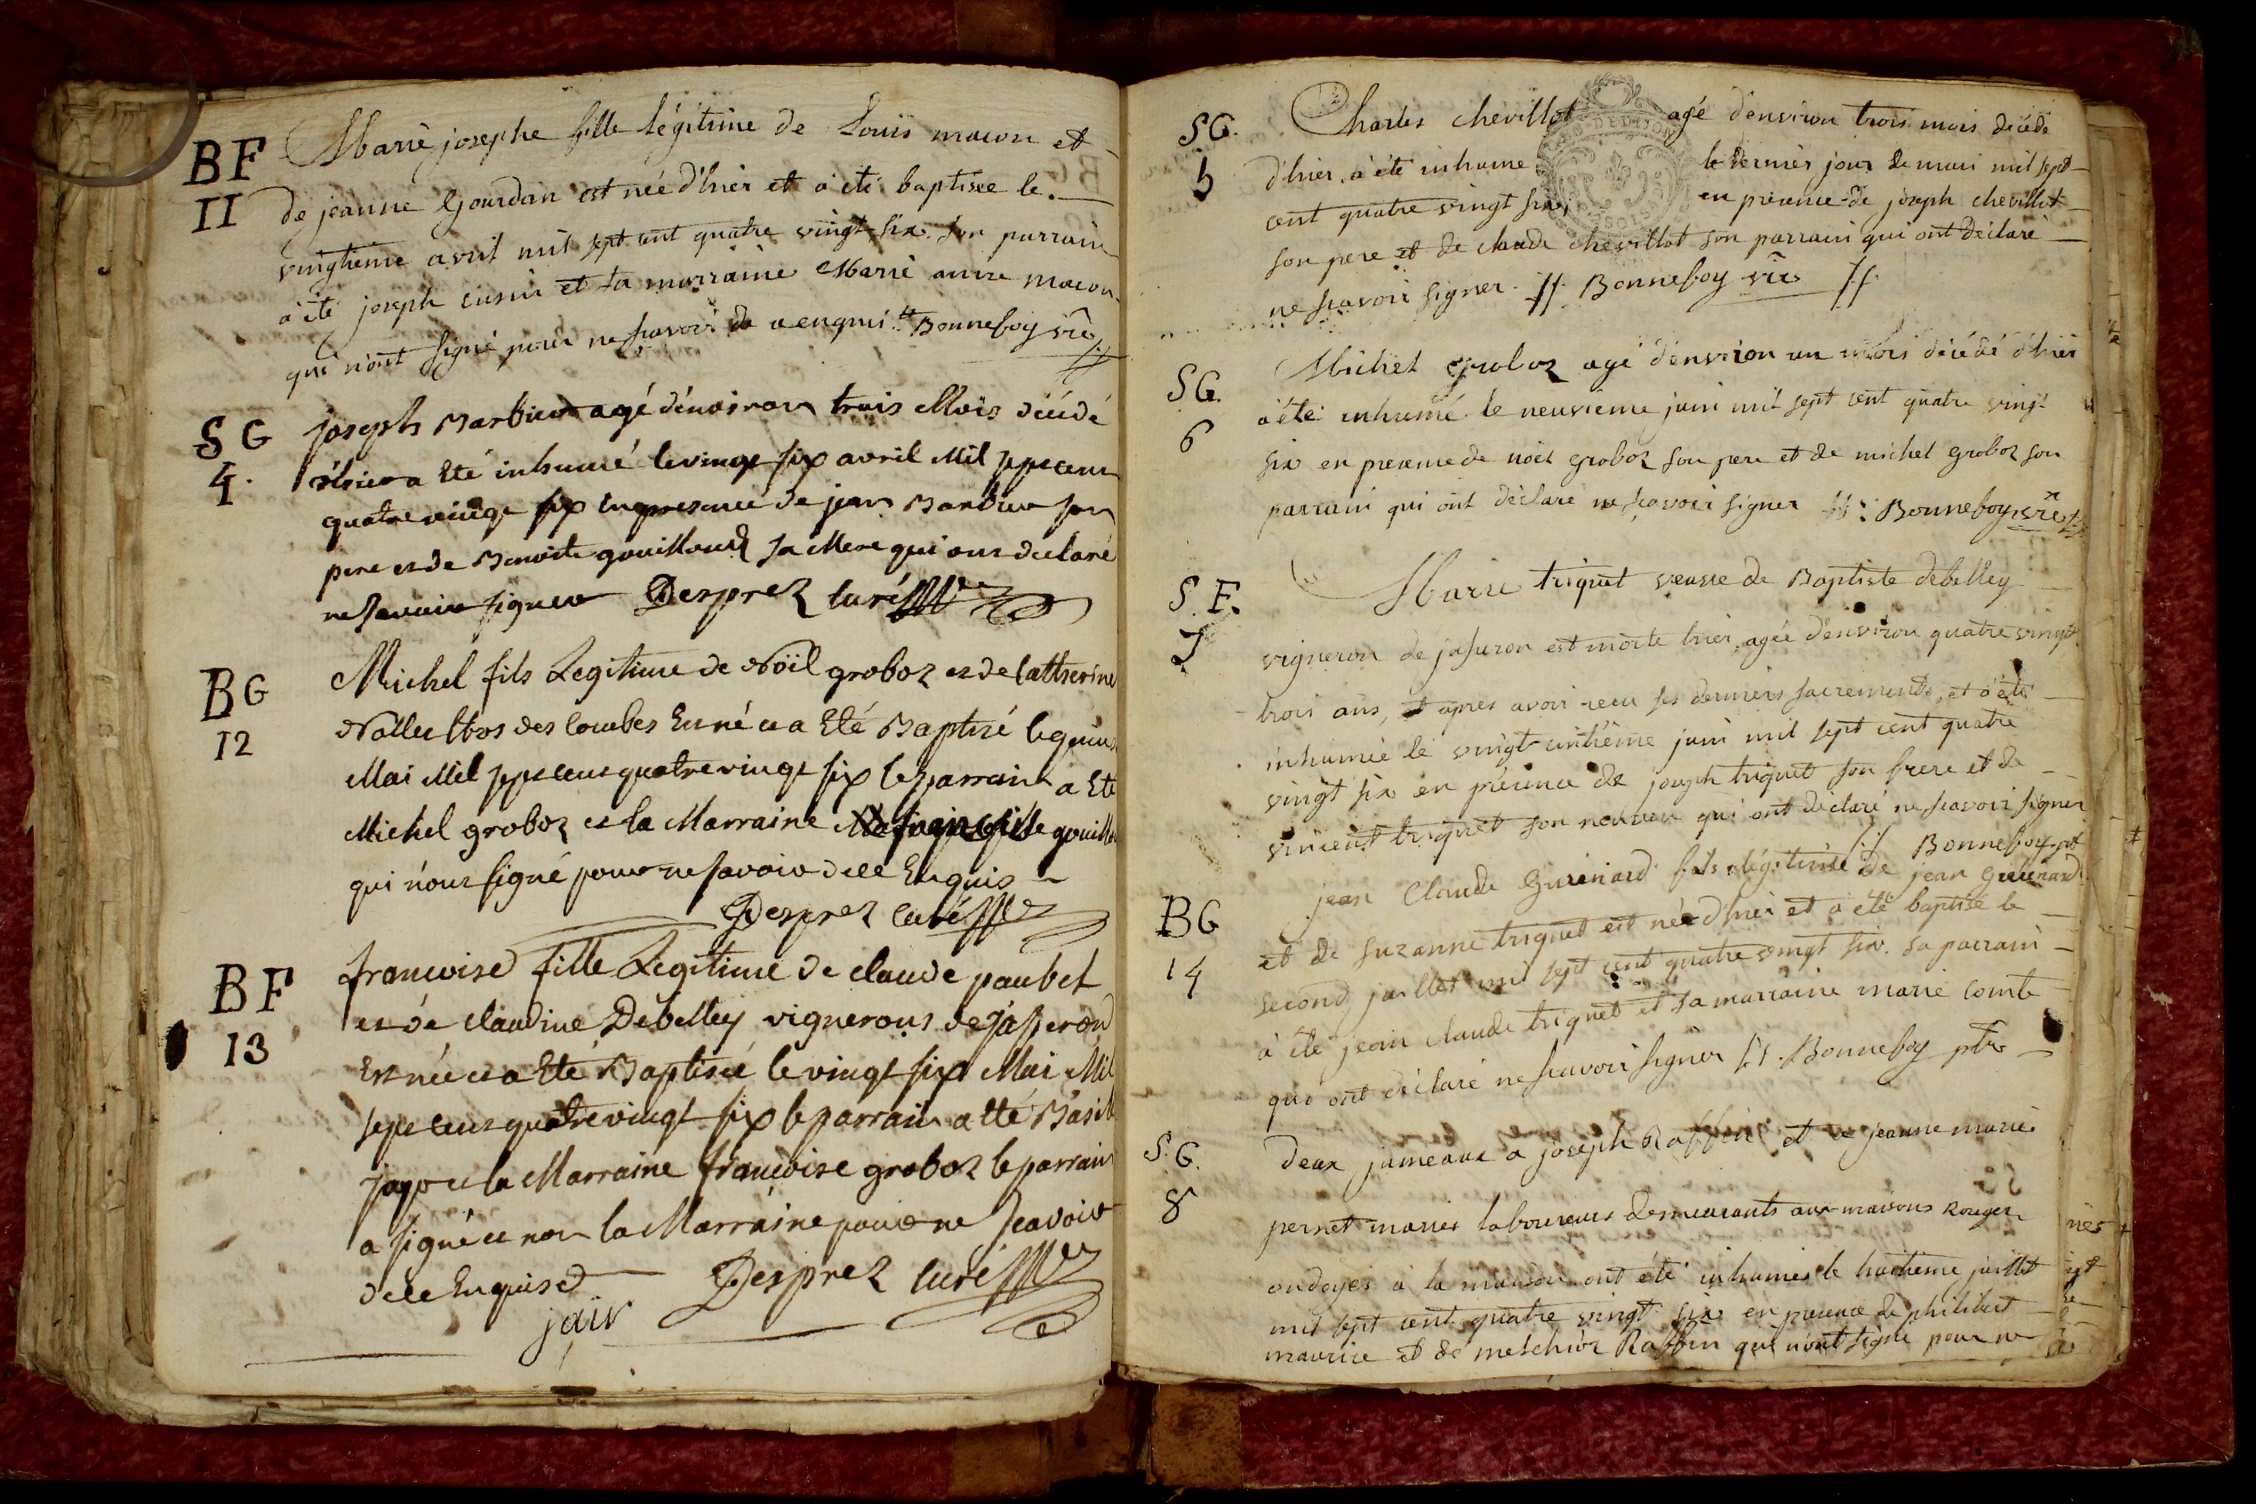 BF
11
Marie josephe fille légitime de Louïs macon et
de jeanne Gourdan est née d'hier et à été baptisée le
vingtieme avril mil sept cent quatre vingt-six. son parrain
à été joseph cusin et sa marraine Marie anne macon
qui n'ont signé pour ne scavoir de ce enquis Bonnefoy vre
SG
4.
joseph Barbier agé d'environ trois Mois décédé
d'hier a Eté inhumé le vingt six avril Mil sept cent
quatre vingt six en presence de jean Barbier son
pere et de Benoite gouilloud sa Mere qui ont declaré
ne Savoir signer Desprez curé
BG
12
Michel fils Legitime de Noïl groboz et de Catherine
des Combes Est né et a Eté Baptisé le
Mai Mil sept cent quatre vingt six le parrain a Eté
Michel groboz et la Marraine
qui n'ont signé pour ne savoir de ce Enquis
Desprez curé
BF
13
francoise fille Legitime de claude paubel
et de claudine Debelley vignerons de jasseron
Est née et a Eté Baptisée le vingt six Mai Mil
sept cent quatre vingt six le parrain a eté Basile
et la Marraine francoise groboz le parrain
a signé et non la Marraine pour ne Scavoir
de ce Enquise Desprez curé
SG.
5
Charles chevillot agé d'environ trois mois décédé
d'hier, à été inhumé le dernier jour de mai mil sept
cent quatre vingt six, en présence de joseph chevillot
son pere et de claude chevillot son parrain qui ont déclaré
ne scavoir signer. Bonnefoy vre
SG.
6
Michel groboz agé d'environ un mois décédé d'hier
à été inhumé le neuvieme juin mil sept cent quatre vingt
six en presence de noël groboz son pere et de michel groboz son
parrain qui ont déclaré ne scavoir signer Bonnefoy vre
S.F.
7
Marie triquet veuve de Baptiste debelley
vigneron de jasseron est morte hier, agée d'environ quatre vingt
trois ans, et apres avoir recu ses derniers sacrements, et à été
inhumée le vingt-unieme juin mil sept cent quatre
vingt six en présence de joseph triquet son frere et de
vincent triquet son neuveu qui ont déclaré ne scavoir signer
Bonnefoy ptr
BG
14
jean Claude Guiénard fils légitime de jean Guiénard
et de suzanne triquet est née d'hier et à été baptisé le
second juillet mil sept cent quatre vingt six. sa parrain
à été jean claude triquet et sa marraine marie comte
qui ont déclaré ne scavoir signer Bonnefoy ptr
S.G.
8
deux jumeaux a joseph Raffin et a jeanne marie
pernet mariés laboureurs demeurants aux maisons Rouges
ondoyés à la maison ont été inhumés le huitieme juillet
mil sept cent quatre vingt six en presence de philibert
maurice et de melchior Raffin qui n'ont signé pour ne